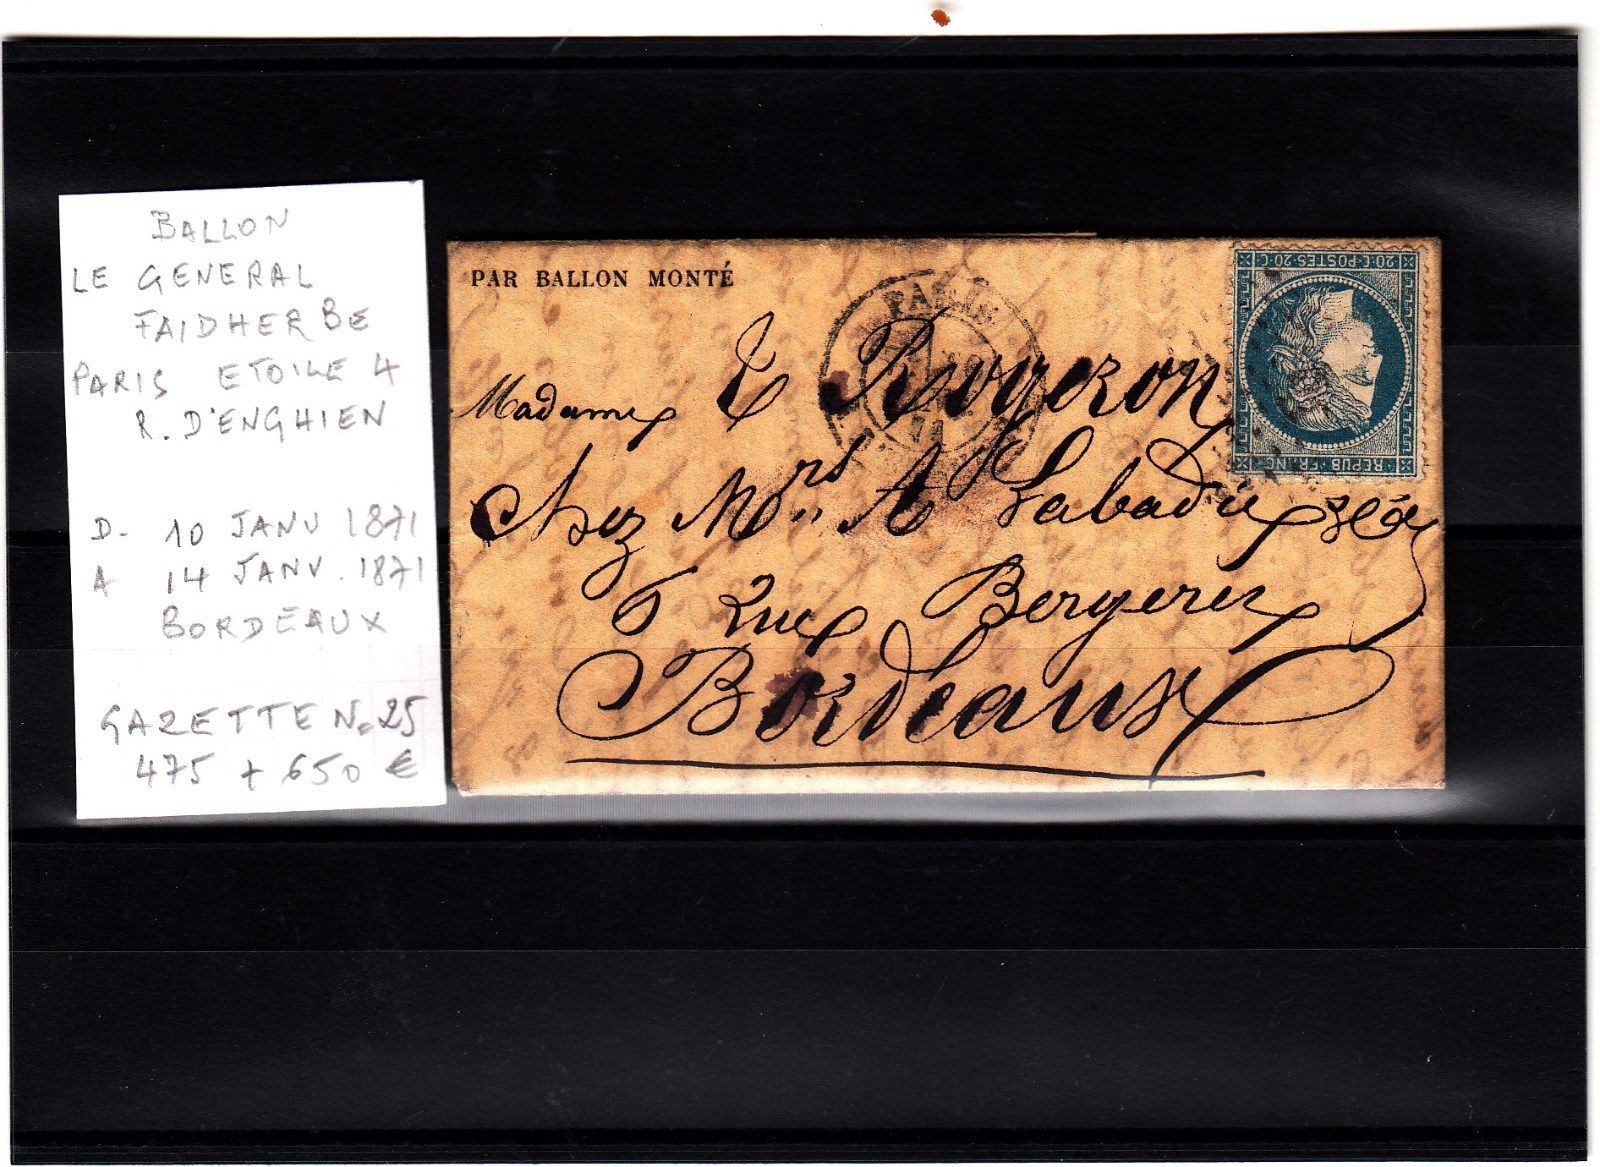 BALLON
LE GENERAL
FAIDHERBE
PARIS ETOILE 4
R. D'ENGHIEN
D- 10 JANV 1871
A 14 JANV. 1871
BORDEAUX
GAZETTE N=25
475 + 650 €
PAR BALLON MONTÉ
PARIS
71
Madame E Rogeron
Chez Mrs A Labadie
6 Rue Bergeret
Bordeaux
20·C·POSTES·20·C
REPUB·FRANC